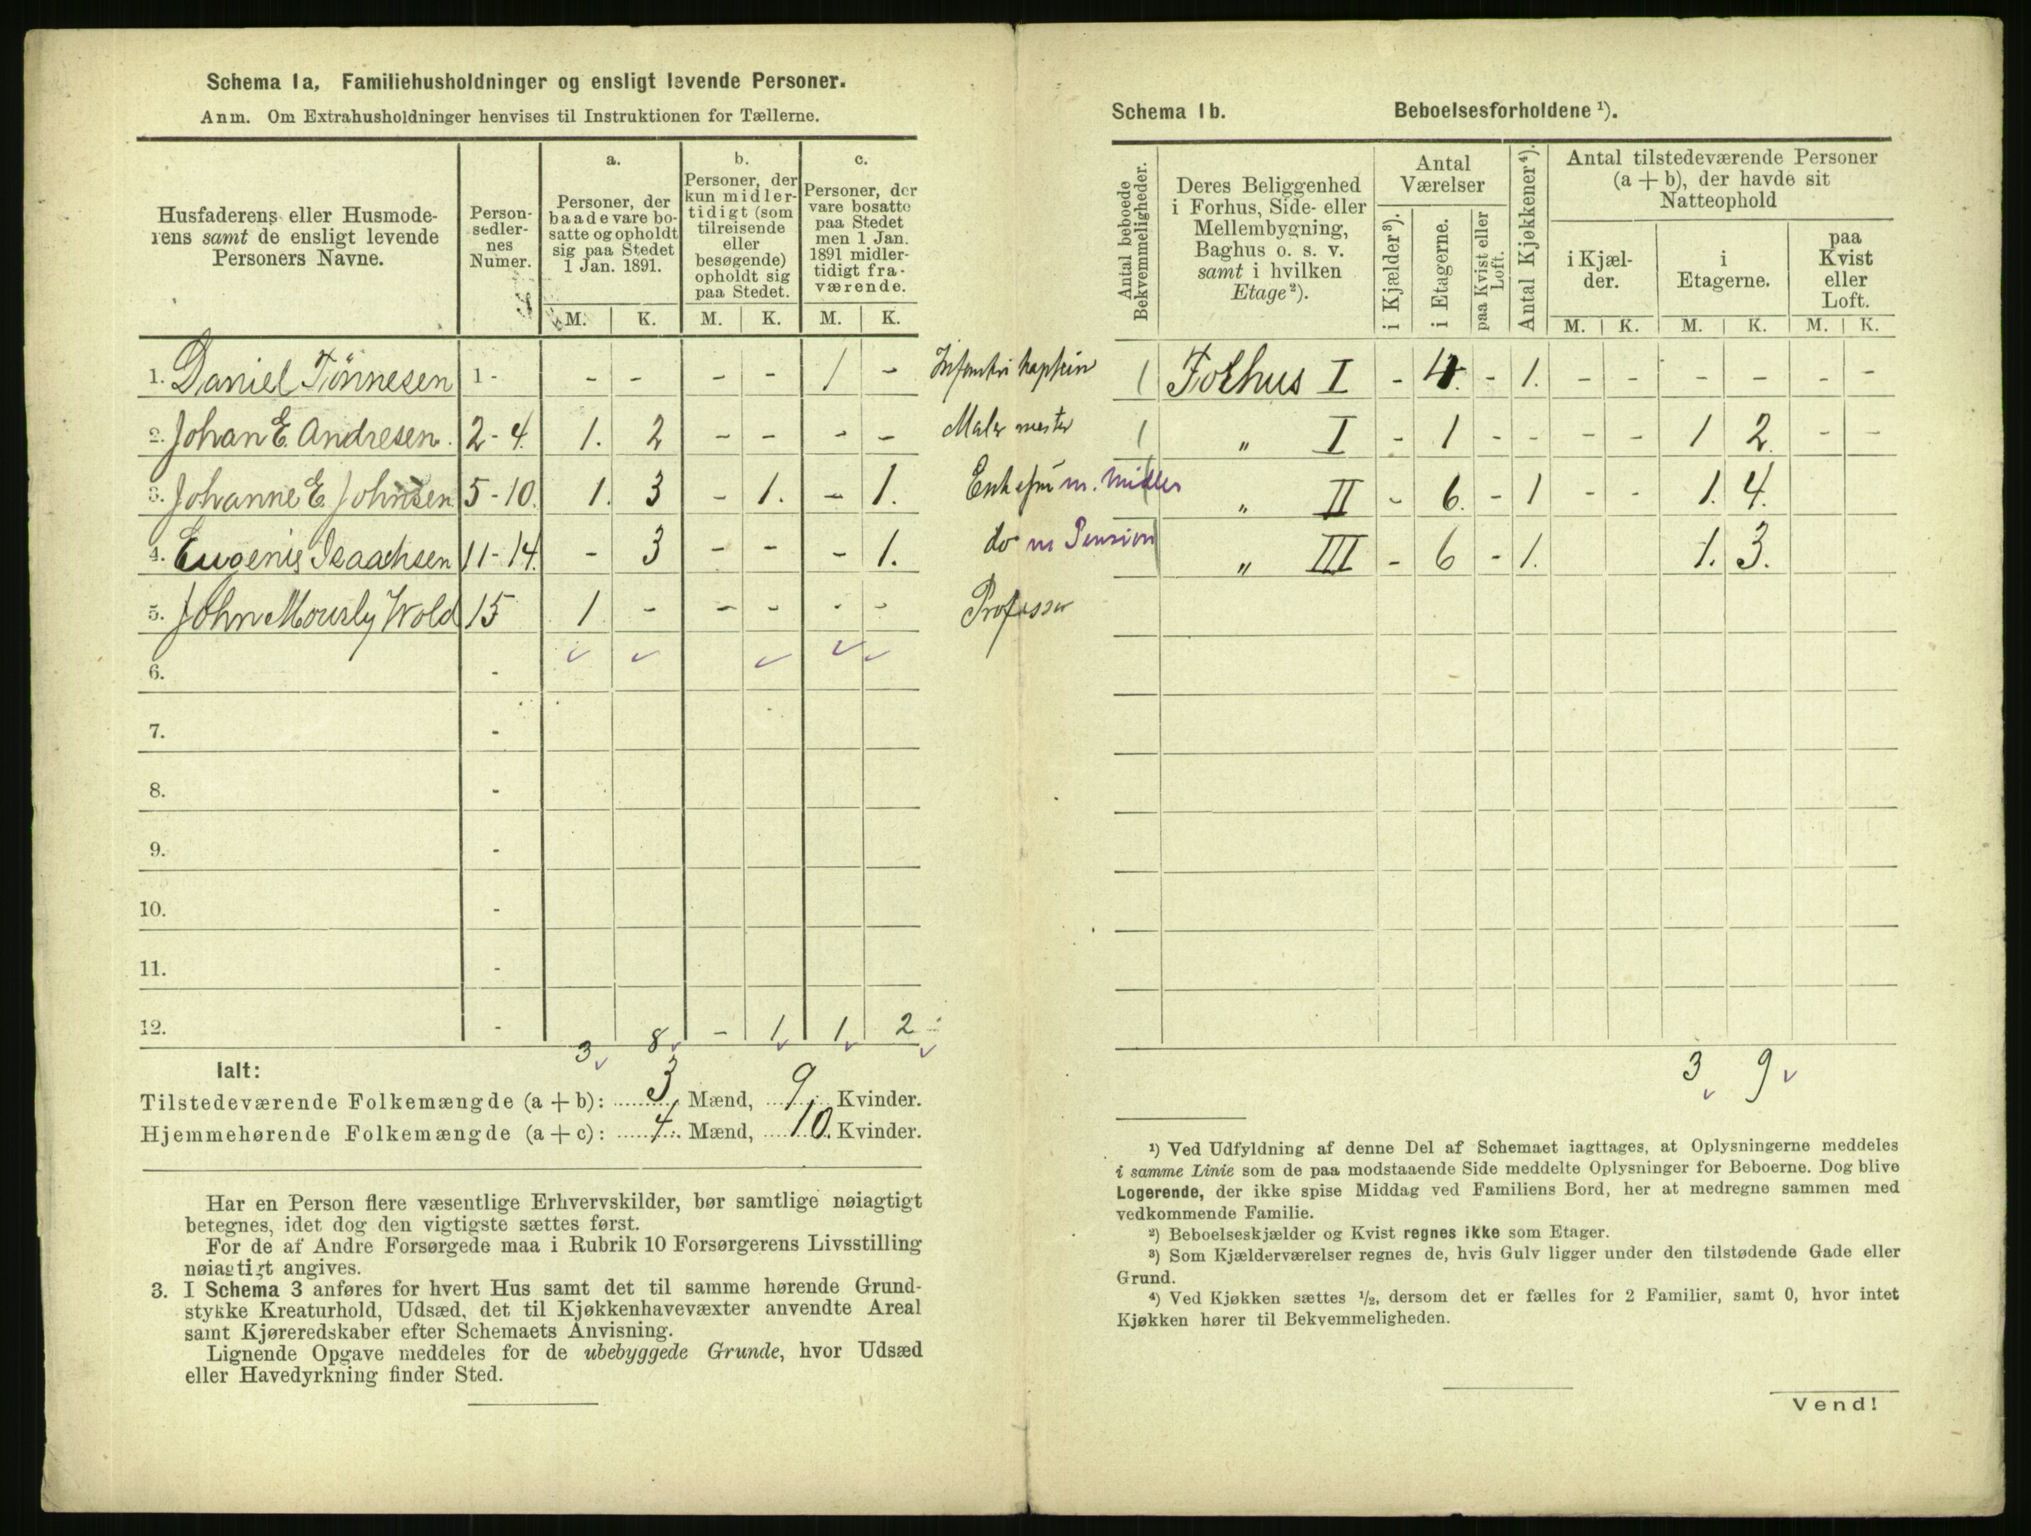 Schema 1a, Familiehusholdninger og ensligt levende Personer.
Anm. Om Extrahusholdninger henvises til Instruktionen for Tællerne.
Husfaderens eller Husmode-
rens samt de ensligt levende
Personers Navne.
Person-
sedler-
nes
Numer.
a.
Personer, der
baade vare bo-
satte og opholdt
sig paa Stedet
1 Jan. 1891.
b.
Personer, der
kun midler-
tidigt (som
tilreisende
eller
besøgende)
opholdt sig
paa Stedet.
c.
Personer, der
vare bosatte
paa Stedet
men 1 Jan.
1891 midler-
tidigt fra-
værende.
M. K. M. K. M. K.
1. Daniel Tönnesen 1 - - - - - 1 - Infanteri kaptein
2. Johan E. Andresen. 2-4. 1. 2 - - - - Maler mester
3. Johanne E. Johnsen 5-10. 1. 3 - 1. - 1. Enkefru m. Midler
4. Eugenie Isaachsen 11-14. - 3 - - - 1. do m Pension
5. John Mourly Wold 15 1 - - - - - Professor
6. -
7. -
8. -
9. -
10. -
11. -
12. -
3 8 - 1 1 2
Ialt:
Tilstedeværende Folkemængde (a + b): 3 Mænd, 9 Kvinder.
Hjemmehørende Folkemængde (a + c): 4 Mænd, 10. Kvinder.
Har en Person flere væsentlige Erhvervskilder, bør samtlige nøiagtigt
betegnes, idet dog den vigtigste sættes først.
For de af Andre Forsørgede maa i Rubrik 10 Forsørgerens Livsstilling
nøiagtigt angives.
3. I Schema 3 anføres for hvert Hus samt det til samme hørende Grund-
stykke Kreaturhold, Udsæd, det til Kjøkkenhavevæxter anvendte Areal
samt Kjøreredskaber efter Schemaets Anvisning.
Lignende Opgave meddeles for de ubebyggede Grunde, hvor Udsæd
eller Havedyrkning finder Sted.
Schema 1b. Beboelsesforholdene ¹).
Antal beboede
Bekvemmeligheder.
Deres Beliggenhed
i Forhus, Side- eller
Mellembygning,
Baghus o. s. v.
samt i hvilken
Etage²).
Antal
Værelser
i Kjælder³).
i Etagerne.
paa Kvist eller
Loft.
Antal Kjøkkener⁴).
Antal tilstedeværende Personer
(a + b), der havde sit
Natteophold
i Kjæl-
der.
i
Etagerne.
paa
Kvist
eller
Loft.
M. K. M. K. M. K.
1 Forhus I - 4. - 1. - - - - - -
1 „ I - 1 - - - - 1 2 - -
1 „ II - 6. - 1 - - 1. 4.
1 „ III - 6 - 1. 1. 3.
3 9
¹) Ved Udfyldning af denne Del af Schemaet iagttages, at Oplysningerne meddeles
i samme Linie som de paa modstaaende Side meddelte Oplysninger for Beboerne. Dog blive
Logerende, der ikke spise Middag ved Familiens Bord, her at medregne sammen med
vedkommende Familie.
²) Beboelseskjælder og Kvist regnes ikke som Etager.
³) Som Kjælderværelser regnes de, hvis Gulv ligger under den tilstødende Gade eller
Grund.
⁴) Ved Kjøkken sættes ½, dersom det er fælles for 2 Familier, samt 0, hvor intet
Kjøkken hører til Bekvemmeligheden.
Vend!